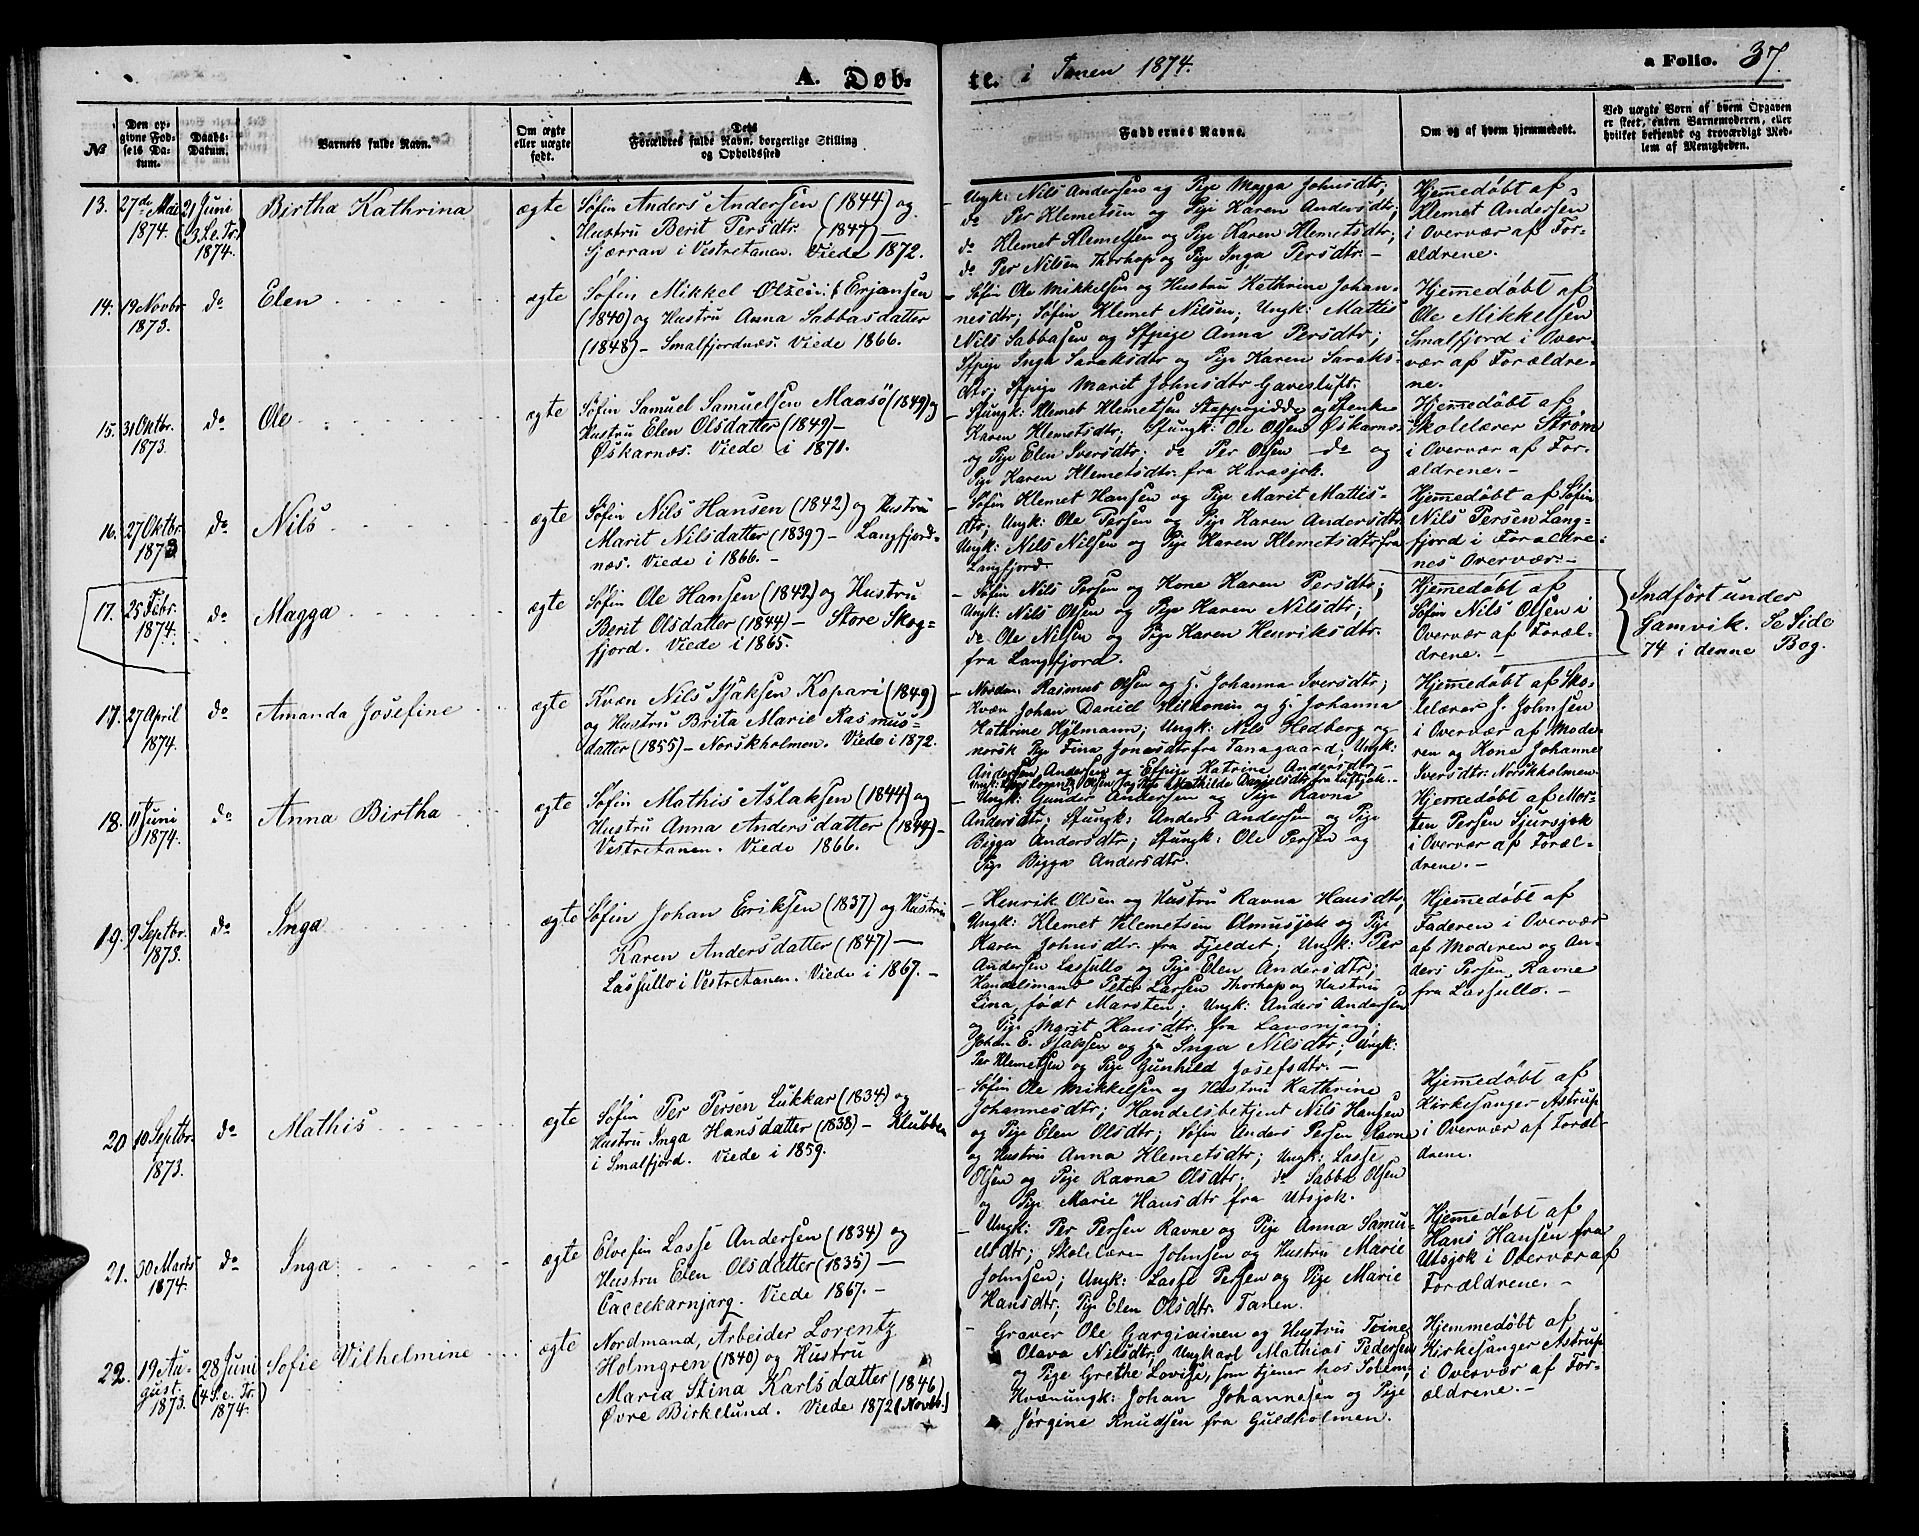 A. Døb-
te. i Tanen 1874.
a Folio. 37.
No
Den op-
givne Fød-
sels Da-
tum.
Daabs-
Datum.
Barnets fulde Navn.
Om ægte
eller uægte
født.
Dets
Forældres fulde Navn, borgerlige Stilling
og Opholdssted
Faddernes Navne.
Om og af hvem hjemmedøbt.
Ved uægte Børn af hvem Opgaven
er skeet, enten Barnemoderen, eller
hvilket bekjendt og troværdigt Med-
lem af Menigheden.
13.
27de Mai
1874.
21 Juni
(3 S. e. Tr.)
1874.
Birtha Kathrina
ægte
Søfin Anders Andersen (1844) og
Hustru Berit Persdtr. (1847) —
Gjærran i Vestretanen. Viede 1872.
— Ungk: Nils Andersen og Pige Magga Johnsdtr;
do Per Klemetsen og Pige Karen Andersdtr;
do Klemet Klemetsen og Pige Karen Klemetsdtr;
do Per Nilsen Thorhop og Pige Inga Persdtr. —
Hjemedøbt af
Klemet Andersen
i Overvær af For-
ældrene.
14.
19 Novbr
1873.
do
Elen
ægte
Søfin Mikkel Olsen: f Erjansen
(1840) og Hustru Anna Sabbasdatter
(1848) — Smalfjordnæs. Viede 1866.
— Søfin Ole Mikkelsen og Hustru Kathrine Johan-
nesdtr; Søfin Klemet Nilsen; Ungk: Mattis
Nils Sabbasen og Stpige Anna Persdtr;
Stpige Inga Saraksdtr og Pige Karen Saraks-
dtr; Stpige Marit Johnsdtr Gavesluft.
Hjemedøbt af
Ole Mikkelsen
Smalfjord i Over-
vær af Forældre-
ne.
15.
31 Oktbr.
1873.
do
Ole
ægte
Søfin Samuel Samuelsen Maasö (1849) og
Hustru Elen Olsdatter (1849) —
Øskarnæs. Viede i 1871.
— Stungk: Klemet Klemetsen Stappogidde og Stenke
Karen Klemetsdtr; Stungk: Ole Olsen Øskarnæs
og Pige Elen Iversdtr; do Per Olsen do og
Pige Karen Klemetsdtr. fra Karasjok.
Hjemedøbt af
Skolelærer Strøm
i Overvær af For-
ældrene. —
16.
27 Oktbr.
1873
do
Nils
ægte
Søfin Nils Hansen (1842) og Hustru
Marit Nilsdatter (1839) — Langfjord-
næs. Viede i 1866. —
— Søfin Klemet Hansen og Pige Marit Mattis-
dtr; Ungk: Ole Persen og Pige Karen Andersdtr
Ungk: Nils Nilsen og Pige Karen Klemetsdtr fra
Langfjord.
Hjemedøbt af Søfin
Nils Persen Lang-
fjord i Forældre-
nes Overvær. —
17.
25 Febr.
1874.
do
Magga
ægte
Søfin Ole Hansen (1842) og Hustru
Berit Olsdatter (1844) — Store Skog-
fjord. Viede i 1865.
— Søfin Nils Persen og Kone Karen Persdtr;
Ungk: Nils Olsen og Pige Karen Nilsdtr;
do Ole Nilsen og Pige Karen Henriksdtr.
fra Langfjord.
Hjemedøbt af
Søfin Nils Olsen i
Overvær af Foræl-
drene. —
Indført under
Gamvik. Se Side
74 i denne Bog.
17.
27 April
1874.
do
Amanda Josefine
ægte
Kvæn Nils Isaksen Kopari (1849)
og Hustru Brita Marie Rasmus-
datter (1855) — Norskholmen. Viede i 1872.
— Nordm: Rasmus Olsen og H. Johanna Iversdtr;
Kvæn Johan Daniel Wilkonin og H. Johanna
Kathrine Hÿlmann; Ungk: Nils Hedberg og
norsk Pige Fina Jonesdtr fra Tanagaard; Ungk:
Andersen Andersen og Etpige Katrine Andersdtr —
Ungk: Lorentz Olsen og Pige Mathilde Danielsdtr fra Luftjok. —
Hjemedøbt af Sko-
lelærer J. Johnsen
i Overvær af Mode-
ren og Kone Johanne
Iversdtr: Norskholmen.
18.
11 Juni
1874.
do
Anna Birtha
ægte
Søfin Mathis Aslaksen (1844) og
Hustru Anna Andersdatter (1844) —
Vestretanen. Viede 1866.
— Ungk: Gunder Andersen og Pige Ravna
Andersdtr; Stungk: Anders Andersen og Pige
Bigga Andersdtr; Stungk: Ole Persen og
Pige Bigga Andersdtr.
Hjemedøbt af Mor-
ten Persen Sjursjok
i Overvær af Foræl-
drene. —
19.
9 Septbr.
1873.
do
Inga
ægte
Søfin Johan Eriksen (1837) og Hustru
Karen Andersdatter (1847) —
Lassullo i Vestretanen. Viede i 1867. —
— Henrik Olsen og Hustru Ravna Hansdtr;
Ungk: Klemet Klemetsen Olmusjok og Pige
Karen Johnsdtr. fra Fjeldet; Ungk: Per
Andersen Lassullo og Pige Elen Andersdtr;
Handelsmand Peter Larsen Thorhop og Hustru
Lina, født Marsten; Ungk: Anders Andersen
og Pige Marit Hansdtr. fra Lavonjarg;
Johan E. Isaksen og Ha Inga Nilsdtr; Ungk:
Per Klemetsen og Pige Gunhild Josefsdtr. —
Hjemedøbt af
Faderen i Overvær
af Moderen og An-
ders Persen Ravne
fra Lassullo. —
20
10 Septbr.
1873.
do
Mathis
ægte
Søfin Per Persen Lukkar (1834) og
Hustru Inga Hansdatter (1838) — Klubben
i Smalfjord. Viede i 1859.
— Søfin Ole Mikkelsen og Hustru Kathrine
Johannesdtr; Handelsbetjent Nils Hansen
og Pige Elen Olsdtr; Søfin Anders Persen Ravne
og Hustru Anna Klemetsdtr; Ungk: Lasse
Olsen og Pige Ravna Olsdtr; do Sabba Olsen
og Pige Marie Hansdtr fra Utsjok.
Hjemedøbt af
Kirkesanger Astrup
i Overvær af Foræl-
drene.
21.
30 Marts
1874.
do
Inga
ægte
Elvefin Lasse Andersen (1834) og
Hustru Elen Olsdatter (1835) —
Caccekarnjarg. Viede 1867. —
— Ungk: Per Persen Ravne og Pige Anna Samu-
elsdtr; Skolelærer Johnsen og Hustru Marie
Johnsen; Ungk: Lasse Persen og Pige Marie
Hansdtr; Pige Elen Olsdtr. Tanen.
Hjemedøbt af
Hans Hansen fra
Utsjok i Overvær af
Forældrene. —
22.
19 Au-
gust.
1873.
28 Juni
(4 S. e. Tr.)
1874.
Sofie Vilhelmine
ægte
Nordmand, Arbeider Lorentz
Holmgren (1840) og Hustru
Maria Stina Karlsdatter (1846)
Øvre Birkelund. Viede 1872 (Novbr.)
— Graver Ole Gargivinen og Hustru Trine
Olava Nilsdtr; Ungkarl Mathias Pedersen
og Pige Grethe Lovise, som tjener hos Solem;
Kvænungk: Johan Johannesen og Pige
Jørgine Knudsen fra Guldholmen.
Hjemmedøbt af
Kirkesanger Astrup
i Overvær af For-
ældrene. —